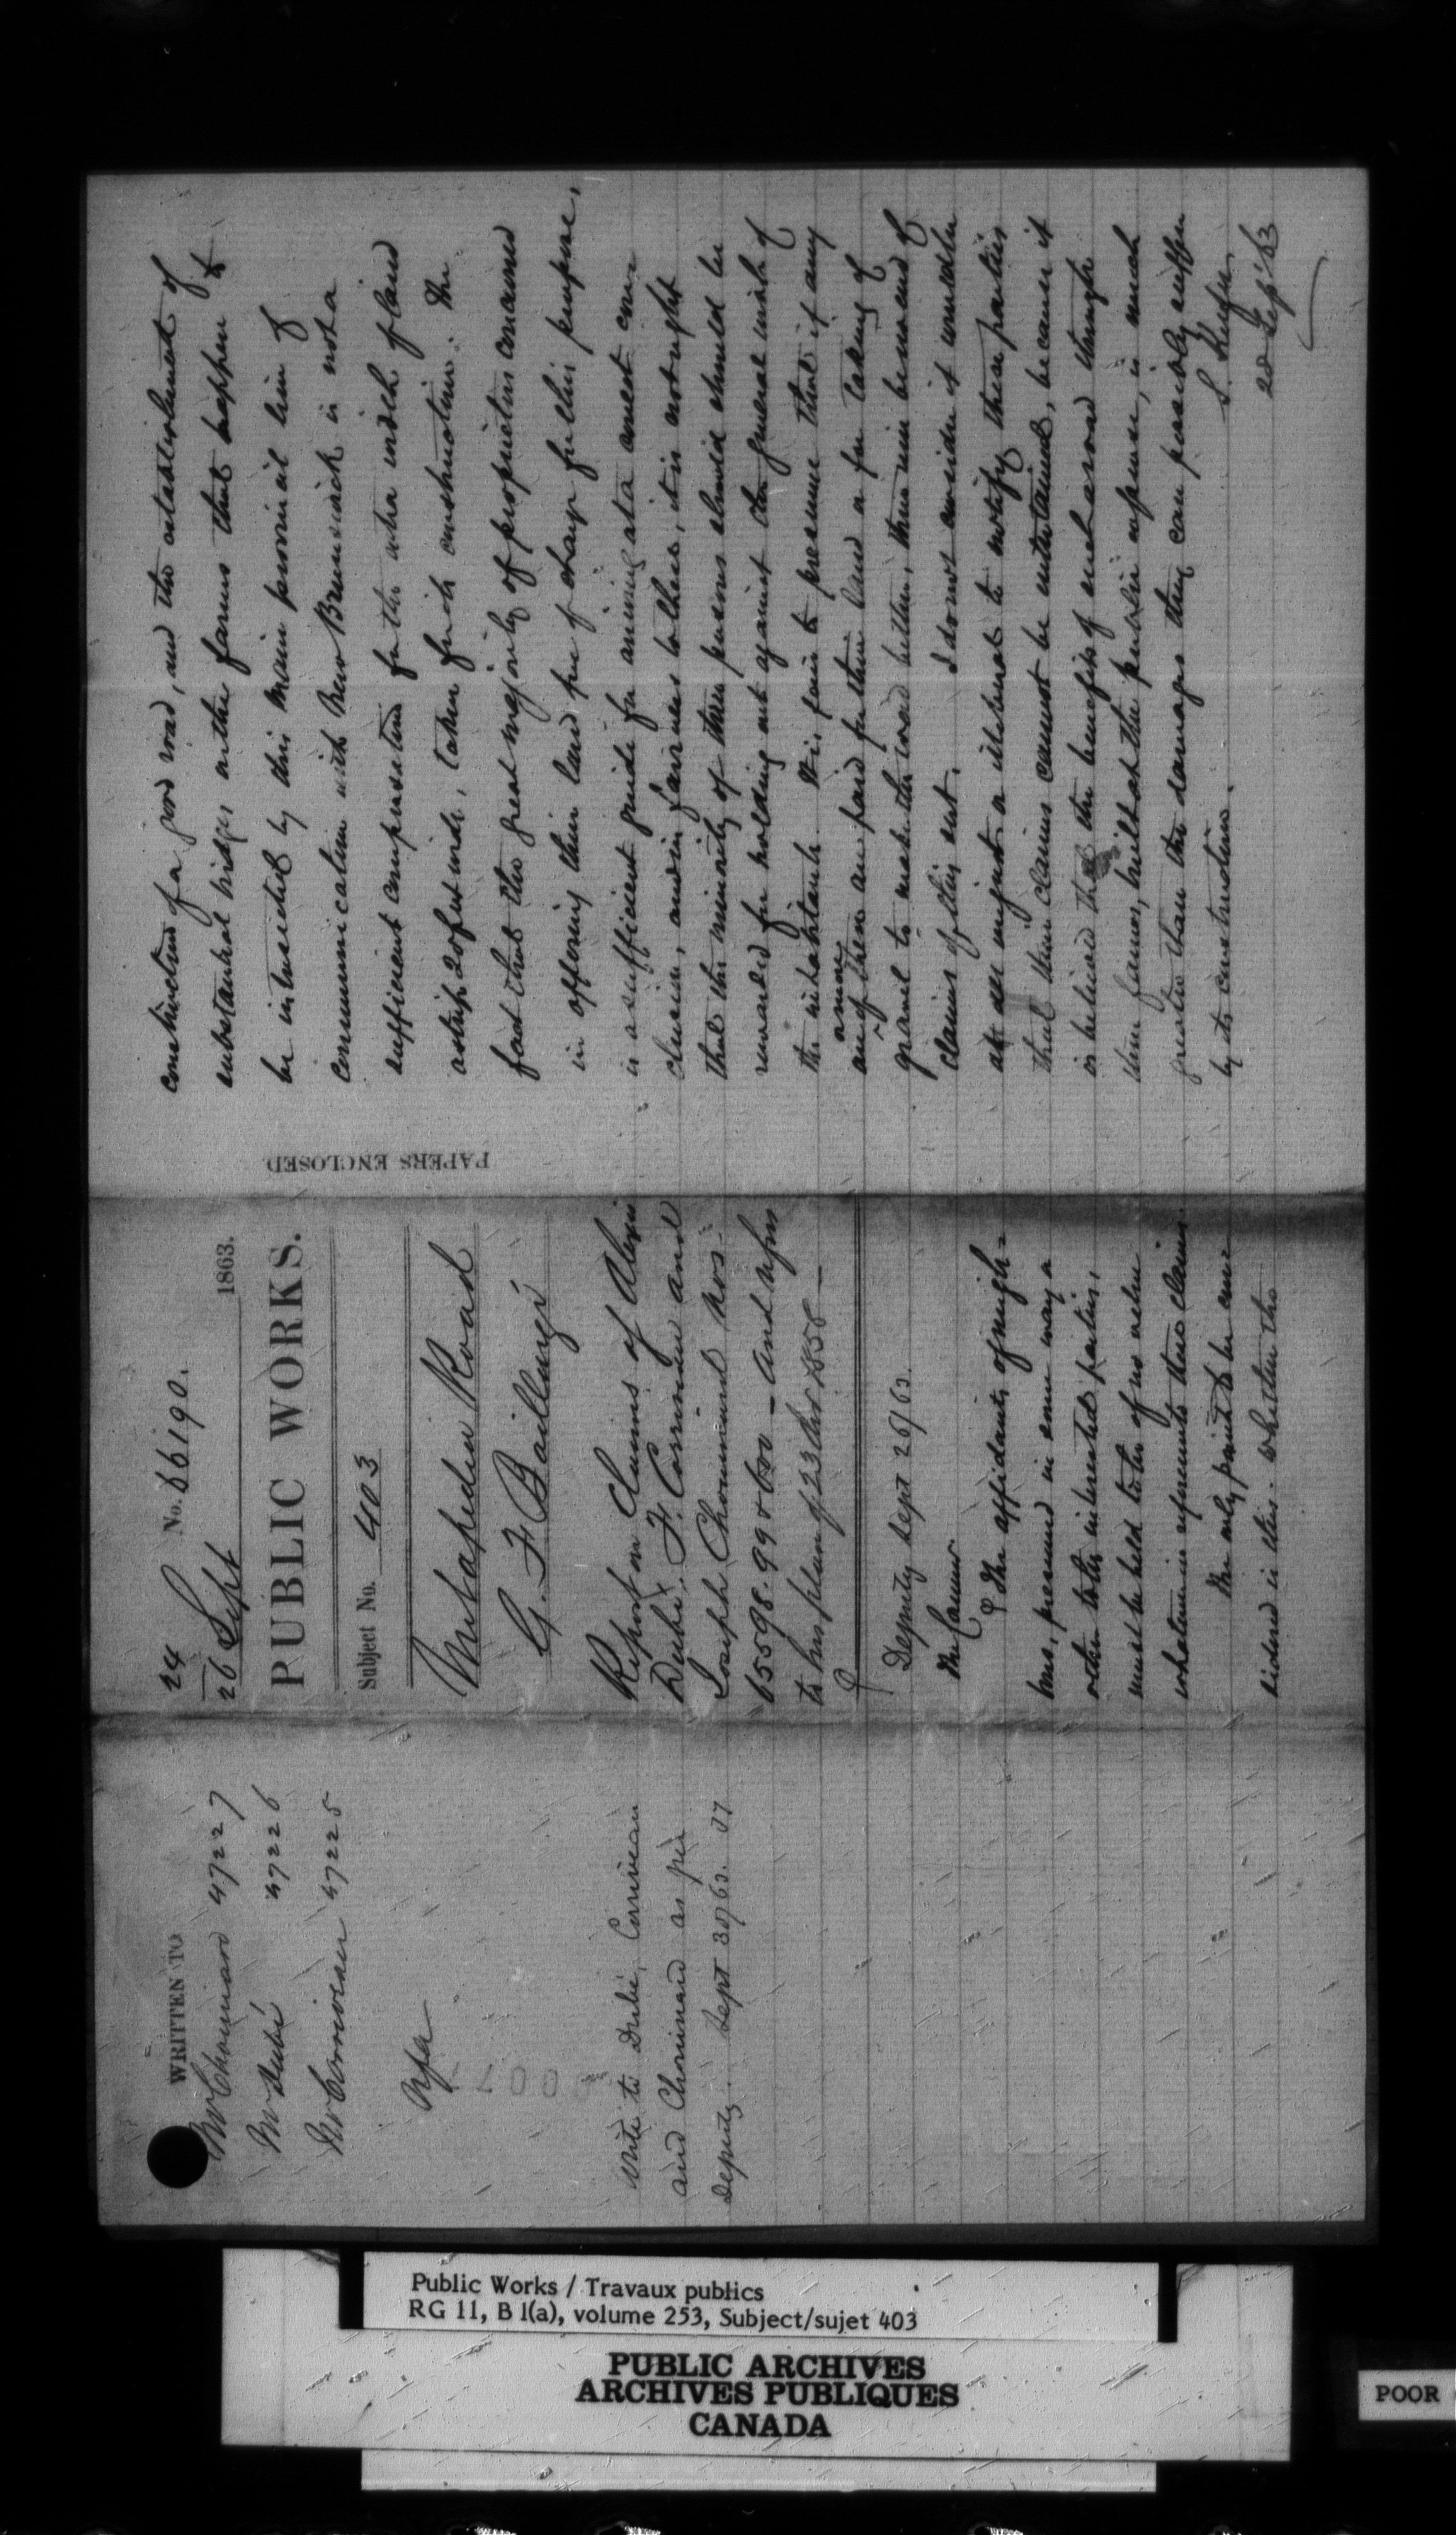 WRITTEN TO
Mr Chouinard 47227
Mr Dubé 47226
Mr Corriveau 47225
Write to Dubé, Corriveau
and Chouinard as per
Deputy. Sept 30/63. JT
24 No. 66190.
26 Sept 1863.
PUBLIC WORKS.
Subject No. 403
Metapedia Road
G. F. Baillairgé
Report on Claims of Alexis
Dubé, F. Corriveau and
Joseph Chouinard Nos.
65598. 99 & 600 – And refers
to his plan of 23 Dec 1858 –
Deputy Sept 26/63.
The affidavits of neigh=
bors, presumed in some way or
other to be interested parties,
must be held to be of no value
whatever in reference to these claims.
The only point to be con-
sidered is this. Whether the
PAPERS ENCLOSED
construction of a good road, and the establishment of
substantial bridges on the farms that happen to
be intersected by this main provincial line of
communication with New Brunswick is not a
sufficient compensation for the extra width of land
a strip 20 feet wide, taken for its construction. The
fact that the great majority of proprietors concerned
in offering their land free of charge for this purpose,
is a sufficient guide for arriving at a correct con-
clusion, and in fairness to these, it is not right
that the minority of three persons should should be
rewarded for holding out against the general wish of
the inhabitants. It is fair to presume that if any
one of them are paid for their land or for taking of
gravel to make the road better, there will be no end of
claims of this sort. I do not consider it
unjust or illiberal to notify these parties
that their claims cannot be entertained, because it
is believed that the benefits of such a road through
their farms, built at the public expense, is much
greater than the damages they can possibly suffer
by its construction.
S. Keefer